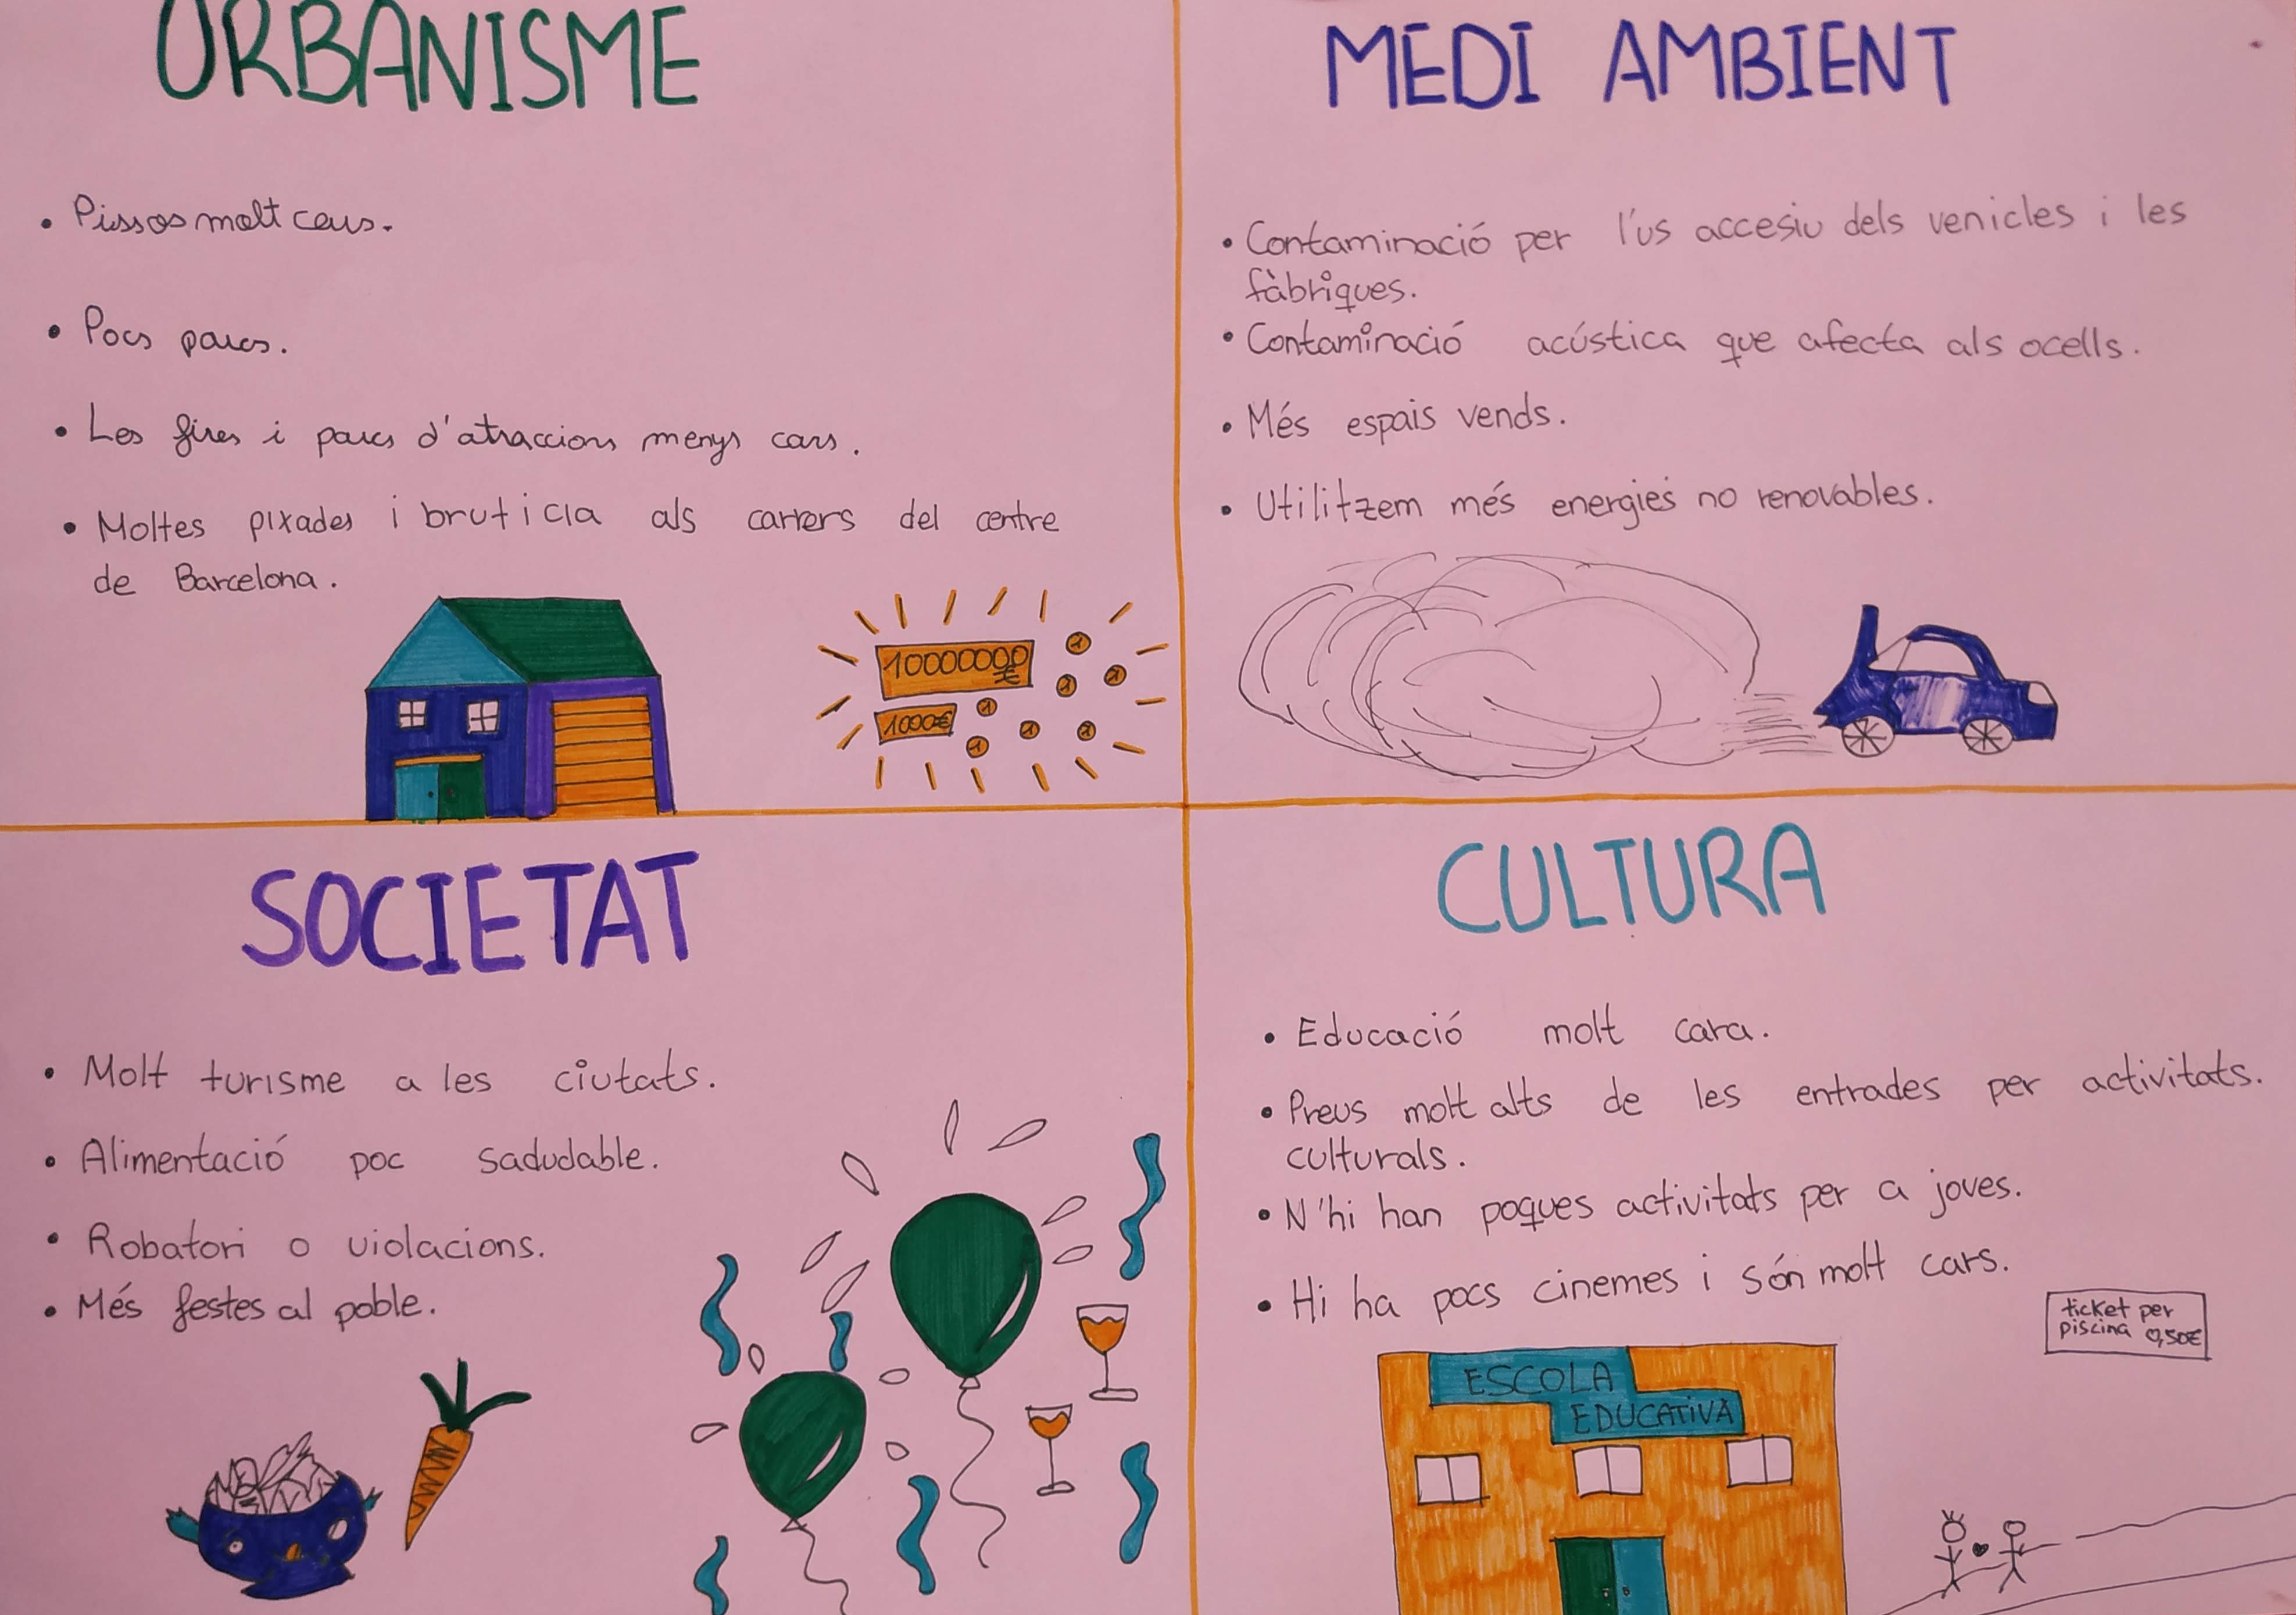 URBANISME
• Pissos molt caus.
• Pocs parcs.
• Les fires i parcs d'atraccions menys cars.
• Moltes pixades i bruticia als carrers del centre
de Barcelona.
10000000€
1000€
1
1
1
1
1
1
1
MEDI AMBIENT
• Contaminació per l'us accesiu dels venicles i les
fàbriques.
• Contaminació acústica que afecta als ocells.
• Més espais vends.
• Utilitzem més energies no renovables.
SOCIETAT
• Molt turisme a les ciutats.
• Alimentació poc saludable.
• Robatori o violacions.
• Més festes al poble.
CULTURA
• Educació molt cara.
• Preus molt alts de les entrades per activitats.
culturals.
• N'hi han poques activitats per a joves.
• Hi ha pocs cinemes i són molt cars.
ticket per
piscina 0,50€
ESCOLA
EDUCATIVA